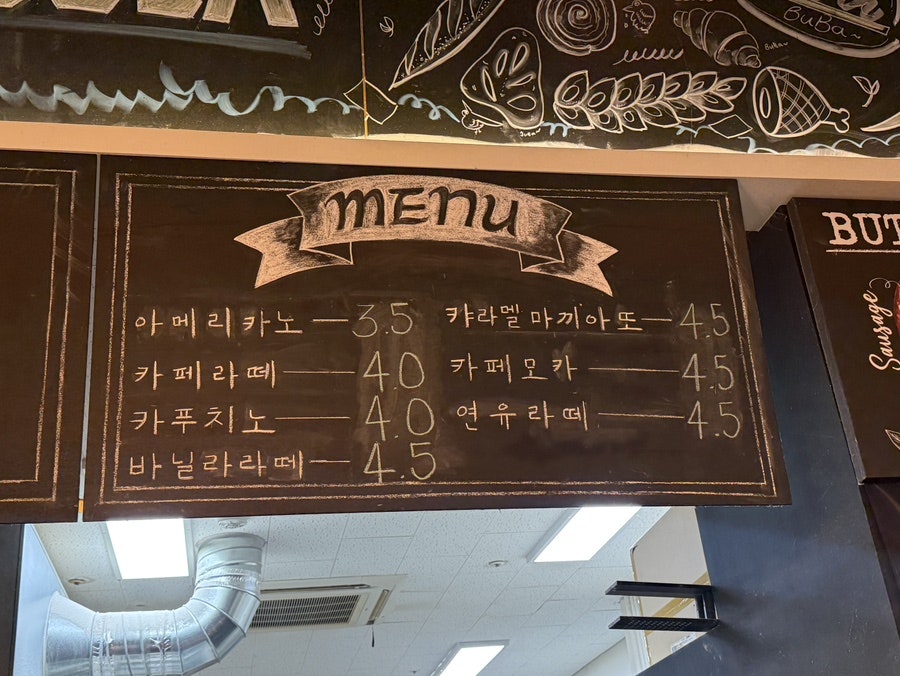 BuBa~
Buka~
MENU
아메리카노 — 3.5
카페라떼 — 4.0
카푸치노 — 4.0
바닐라라떼 — 4.5
캬라멜마끼아또 — 4.5
카페모카 — 4.5
연유라떼 — 4.5
BUT
Sausage